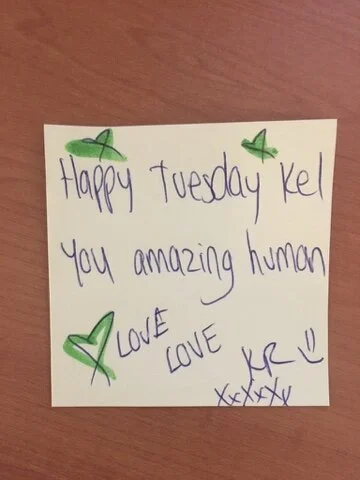 Happy Tuesday Kel
You amazing human
LOVE
LOVE
KR
XxXxXx